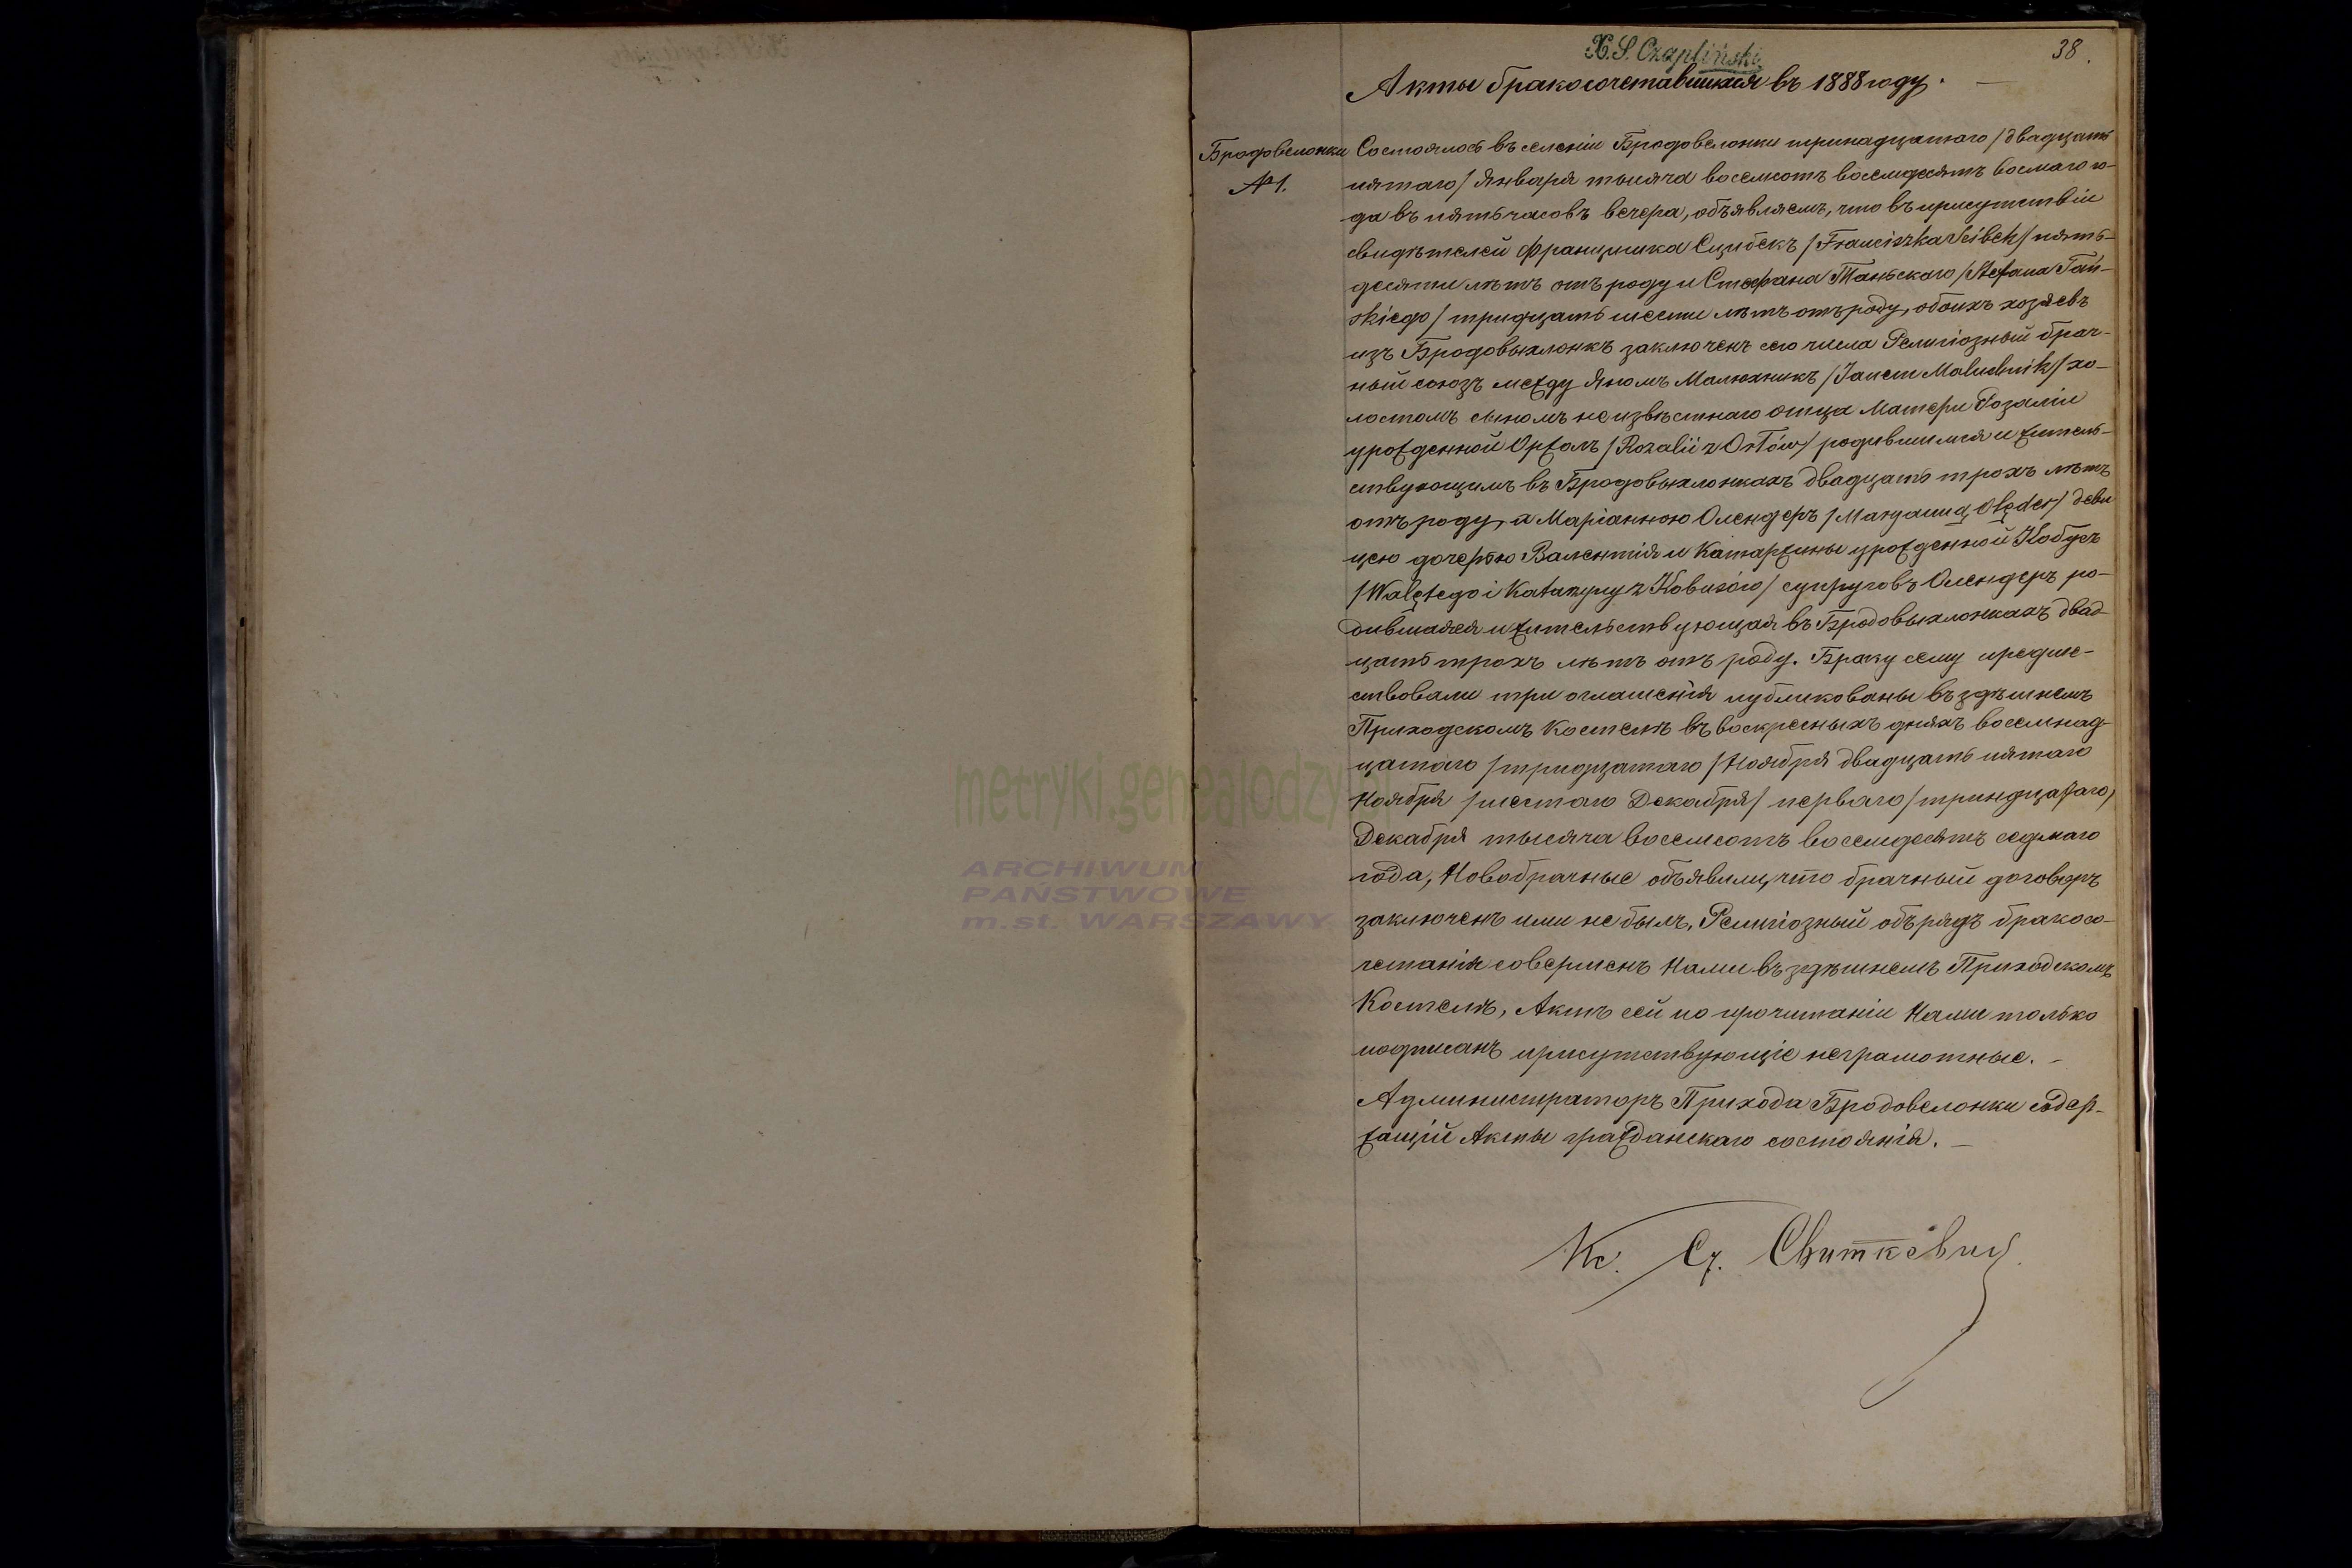 X. S. Czapliński
38.
Акты бракосочетавшихся въ 1888 году.
Бродовелонки
№ 1.
Состоялось въ селеніи Бродовелонки тринадцатаго /двадцать
пятаго/ Января тысяча восемьсотъ восемдесятъ восмаго го-
да въ пять часовъ вечера, объявляемъ, что въ присутствіи
свидѣтелей Францишка Сцибекъ /Franciszka Scibek/ пять-
десяти лѣтъ отъ роду и Стефана Таньскаго /Stefana Tań-
skiego/ тридцать шести лѣтъ отъ роду, обоихъ хозяевъ
изъ Бродовыхлонкъ заключенъ сего числа Религіозный брач-
ный союзъ между Яномъ Малюхникъ /Janem Maluchnik/ хо-
лостомъ сыномъ неизвѣстнаго отца Матери Розаліи
урожденной Оржолъ /Rozalii z Orłów/ родившимся и житель-
ствующимъ въ Бродовыхлонкахъ двадцать трохъ лѣтъ
отъ роду, а Маріанною Олендеръ /Maryanną Olęder/ деви
цею дочерью Валентія и Катаржины урожденной Кобусъ
/Walętego i Katarzyny z Kobusów/ супруговъ Олендеръ ро-
дившаяся и жительствующая въ Бродовыхлонкахъ двад-
цать трохъ лѣтъ отъ роду. Браку сему предше-
ствовали три оглашенія публикованы въ здѣшнемъ
Приходскомъ Костелѣ въ воскресныхъ дняхъ восемнад-
цатаго /тридцатаго/ Ноября двадцать пятаго
Ноября /шестаго Декабря/ перваго /триндцатаго/
Декабря тысяча восемсотъ восемдесятъ седмаго
года, Новобрачные объявили, что брачный договоръ
заключенъ ими не былъ, Религіозный обърядъ бракосо-
четанія совершенъ Нами въ здѣшнемъ Приходскомъ
Костелѣ, Актъ сей по прочитаніи Нами только
подписанъ присутствующіе неграмотные. -
Администраторъ Прихода Бродовелонки содер-
жащій Акты гражданскаго состоянія. —
Кс. Ст. Свиткевич
metryki.genealodzy
ARCHIWUM
PAŃSTWOWE
m.st. WARSZAWY